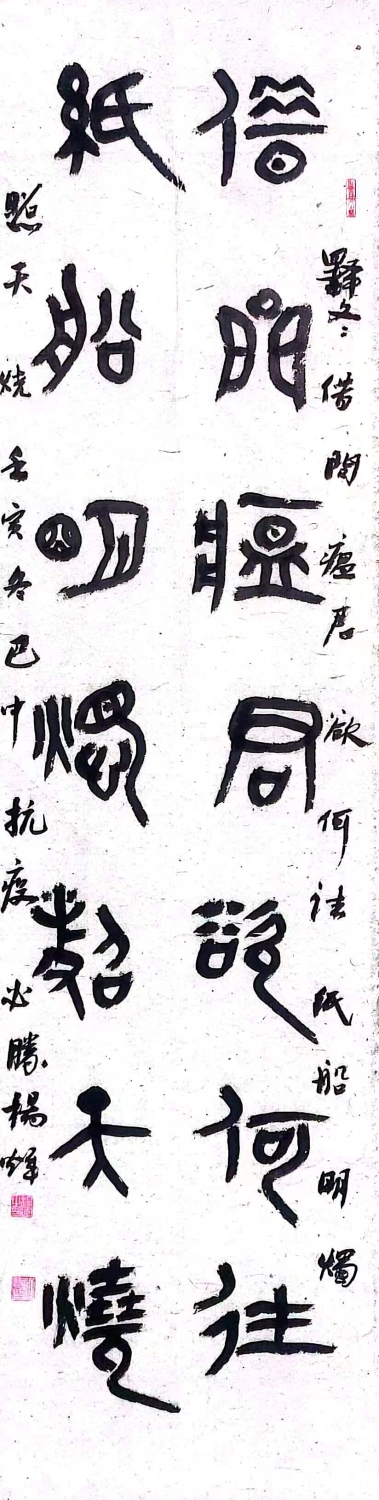 釋文：借問瘟君欲何往紙船明燭
借問瘟君欲何往
紙船明燭照天燒
照天烧壬寅冬巴中抗疫必勝楊